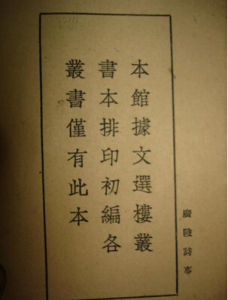 本館據文選樓叢
書本排印初編各
叢書僅有此本